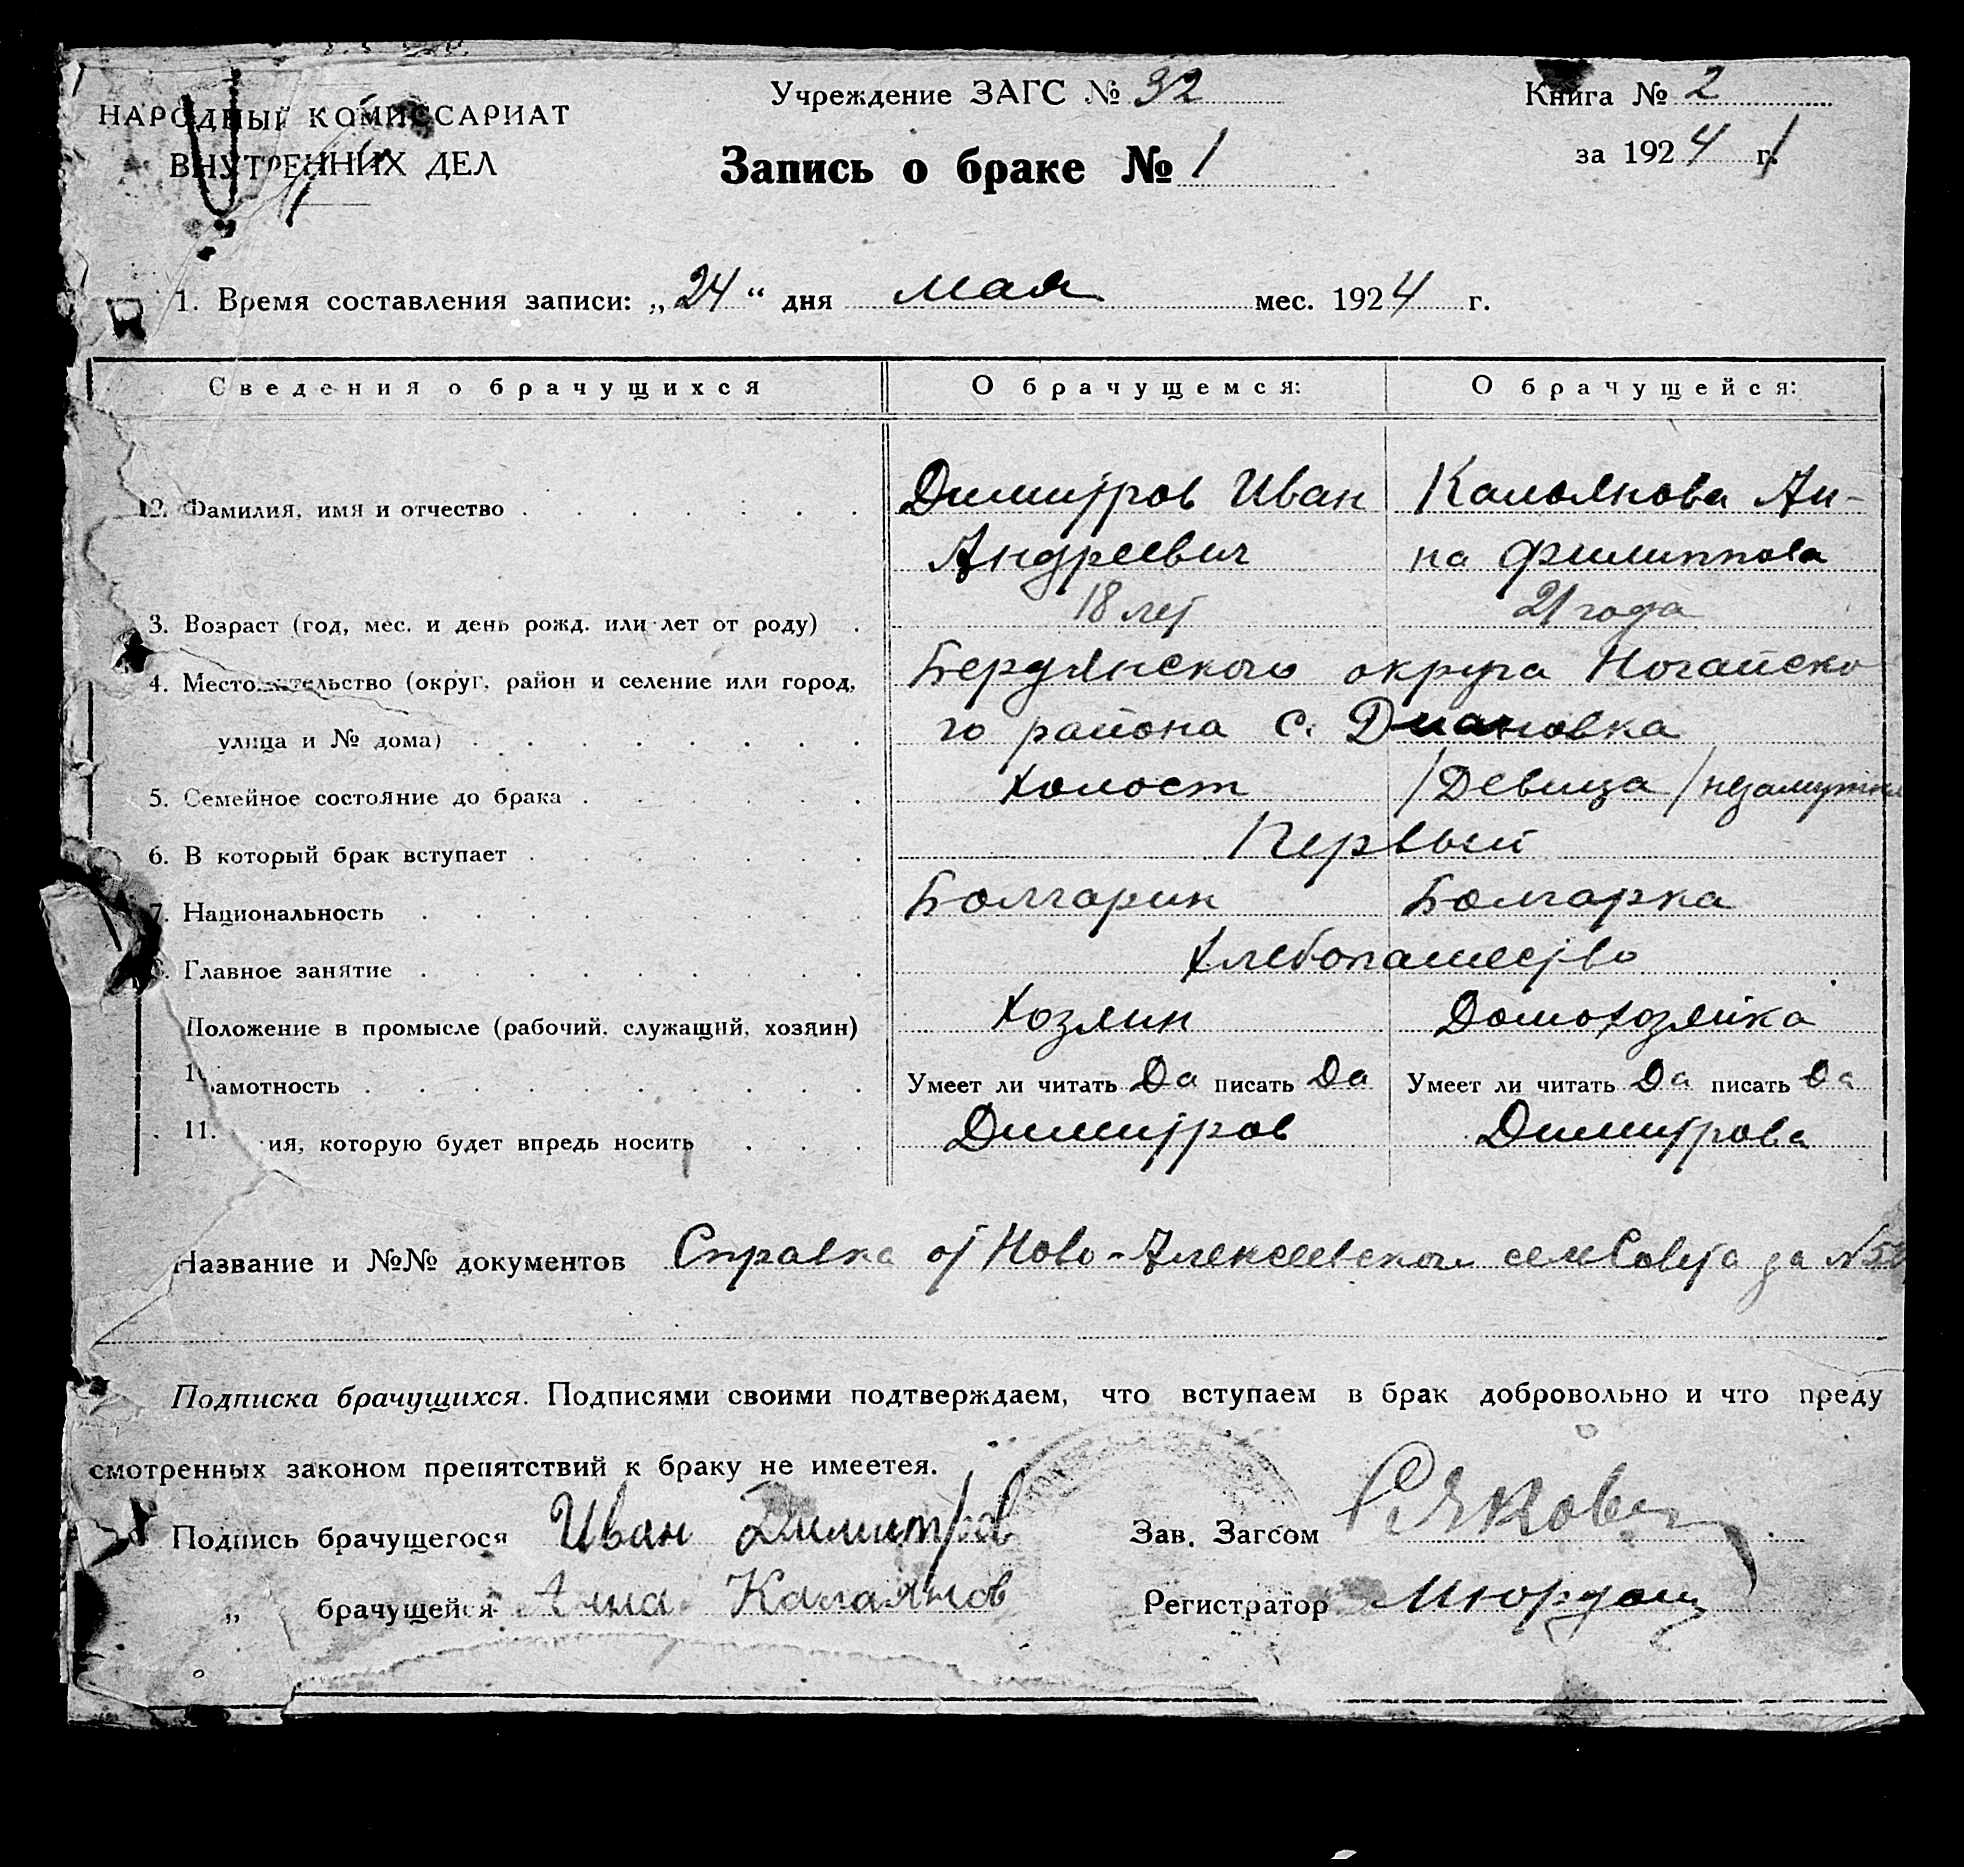 НАРОДНЫЙ КОМИССАРИАТ
ВНУТРЕННИХ ДЕЛ
Учреждение ЗАГС № 32
Запись о браке № 1
Книга № 2
за 1924 г.
1. Время составления записи: „24“ дня мая мес. 1924 г.
Сведения о брачущихся О брачущемся: О брачущейся:
2. Фамилия, имя и отчество Димитров Иван Калоянова Ан-
Андреевич на Филиппова
3. Возраст (год, мес. и день рожд. или лет от роду) 18 лет 21 года
4. Местожительство (округ, район и селение или город, Бердянского округа Ногайско
улица и № дома) го района с. Диановка
5. Семейное состояние до брака Холост /Девица/ незамужняя
6. В который брак вступает Первый
7. Национальность Болгарин Болгарка
Главное занятие Хлебопашество
Положение в промысле (рабочий, служащий, хозяин) Хозяин Домохозяйка
амотность Умеет ли читать Да писать Да Умеет ли читать Да писать Да
11. ия, которую будет впредь носить Димитров Димитрова
Название и №№ документов Справка от Ново-Алексеевского сельСовета за №
Подписка брачущихся. Подписями своими подтверждаем, что вступаем в брак добровольно и что преду
смотренных законом препятствий к браку не имеетея.
Подпись брачущегося Иван Димитров
Зав. Загсом
„ брачущейся Анна Калаянов
Регистратор